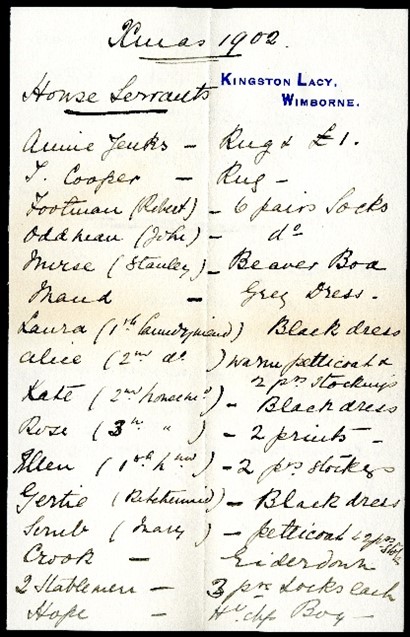 Xmas 1902.
KINGSTON LACY,
WIMBORNE.
House Servants
Annie Jenks - Rug & £1.
T. Cooper - Rug -
Footman (Robert) - 6 pairs Socks
Odd man (John) - do
Nurse (Stanley) - Beaver Boa
Maud - Grey Dress.
Laura (1st laundrymaid) Black dress
Alice (2nd do) warm petticoat &
2 prs stockings
Kate (2nd housemd) - Black dress
Rose (3rd ") - 2 prints -
Ellen (1st h md) - 2 prs stockgs
Gertie (Kitchenmaid) - Black dress
Scrub (Mary) - petticoat & 2 prs
Crook - Eiderdown
2 Stablemen - 3 prs socks each
Hope - Hd chf Box -